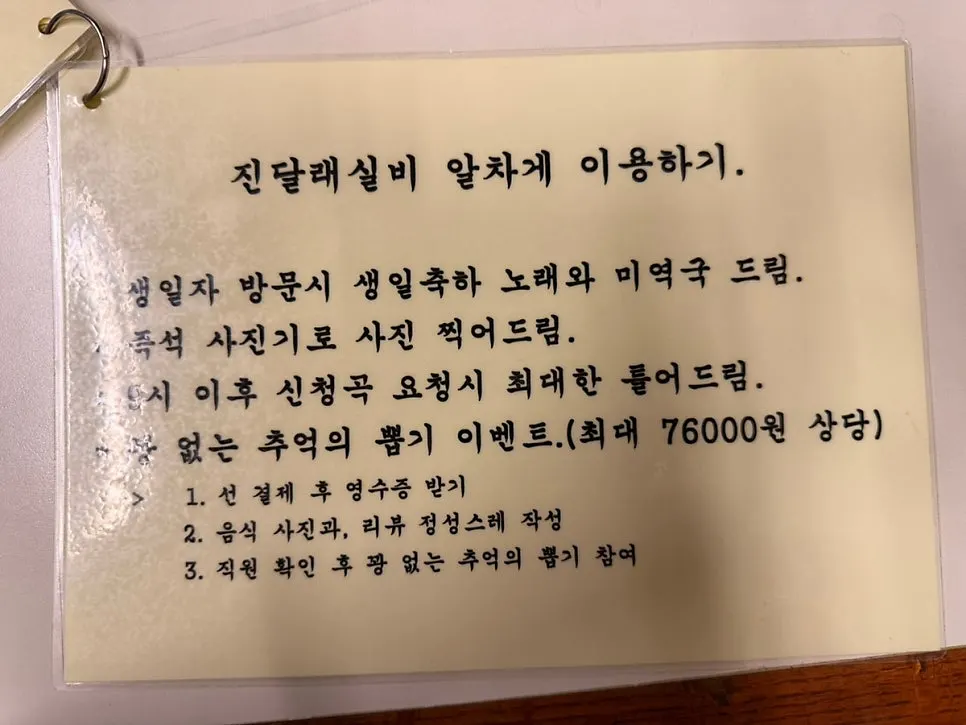 진달래실비 알차게 이용하기.
생일자 방문시 생일축하 노래와 미역국 드림.
즉석 사진기로 사진 찍어드림.
9시 이후 신청곡 요청시 최대한 틀어드림.
꽝 없는 추억의 뽑기 이벤트.(최대 76000원 상당)
> 1. 선 결제 후 영수증 받기
2. 음식 사진과, 리뷰 정성스레 작성
3. 직원 확인 후 꽝 없는 추억의 뽑기 참여